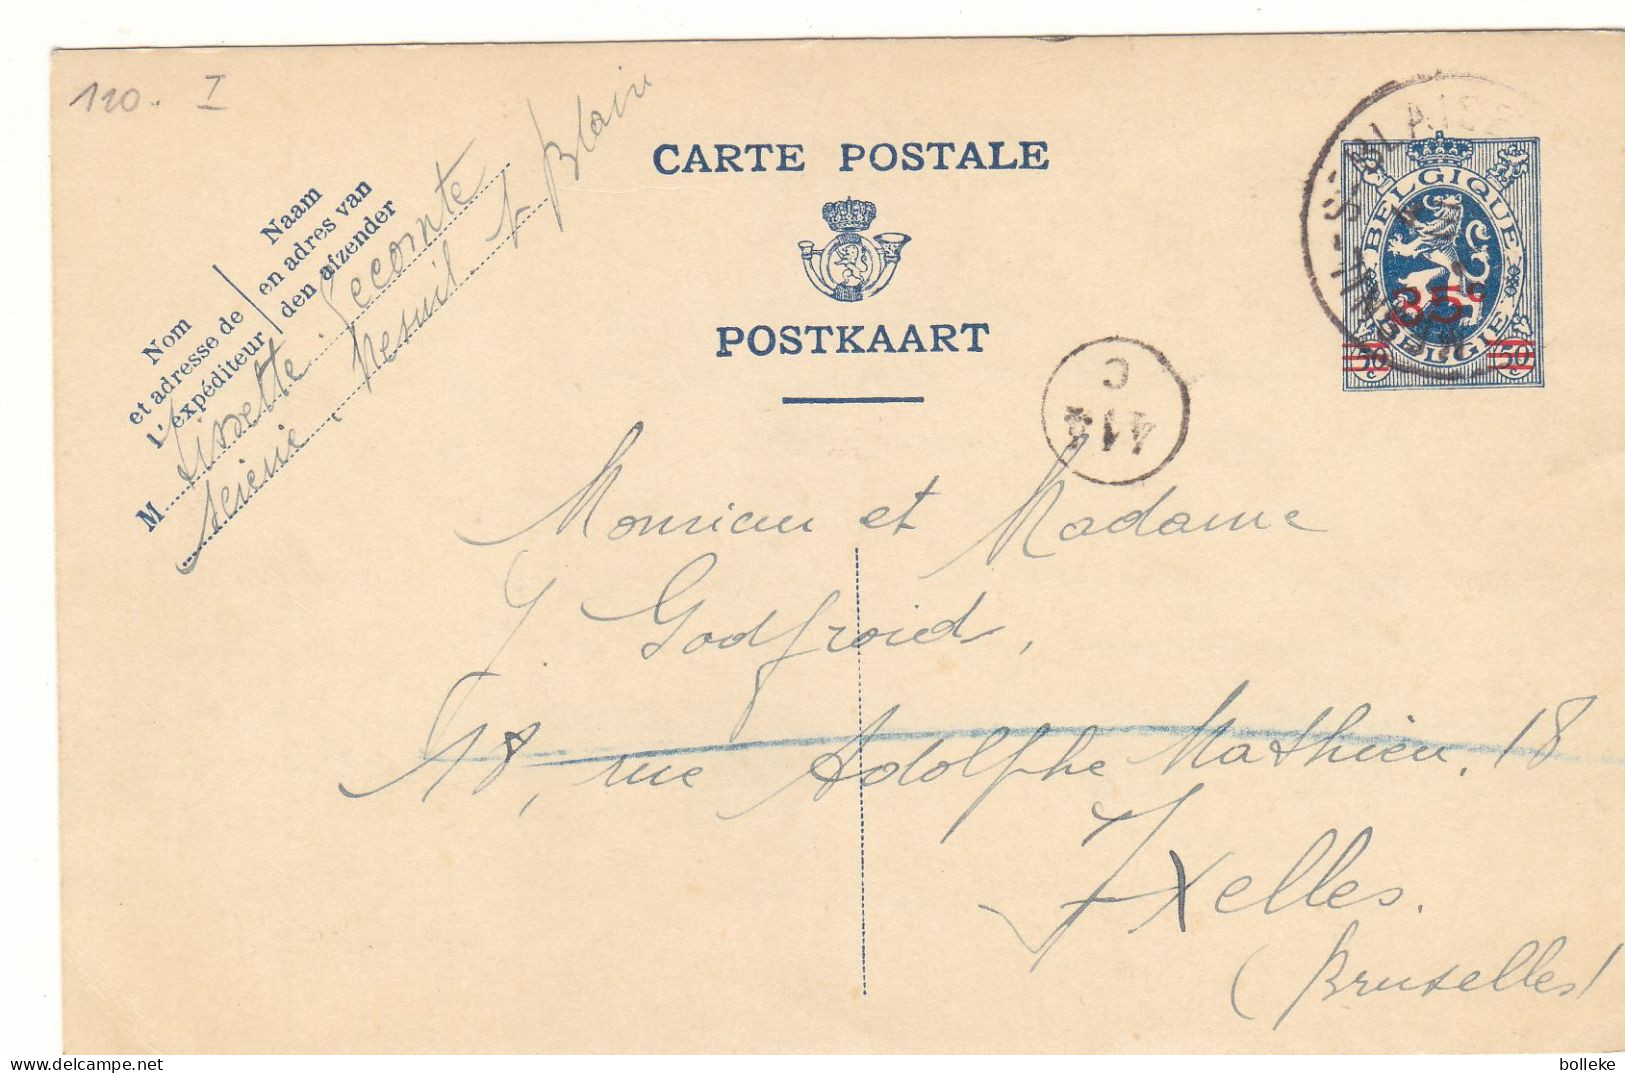 110.. I
CARTE POSTALE
POSTKAART
Nom
et adresse de
l'expéditeur
Naam
en adres van
den afzender
M Lisette Lecomte
Scierie, Mesnil St Blaise
MESNIL-ST-BLAISE
BELGIQUE
35c
50 c
50 c
BELGIE
C
411
Monsieur et Madame
J. Godfroid,
18, rue Adolphe Mathieu. 18
Ixelles.
(Bruxelles)
delcampe.net
bolleke